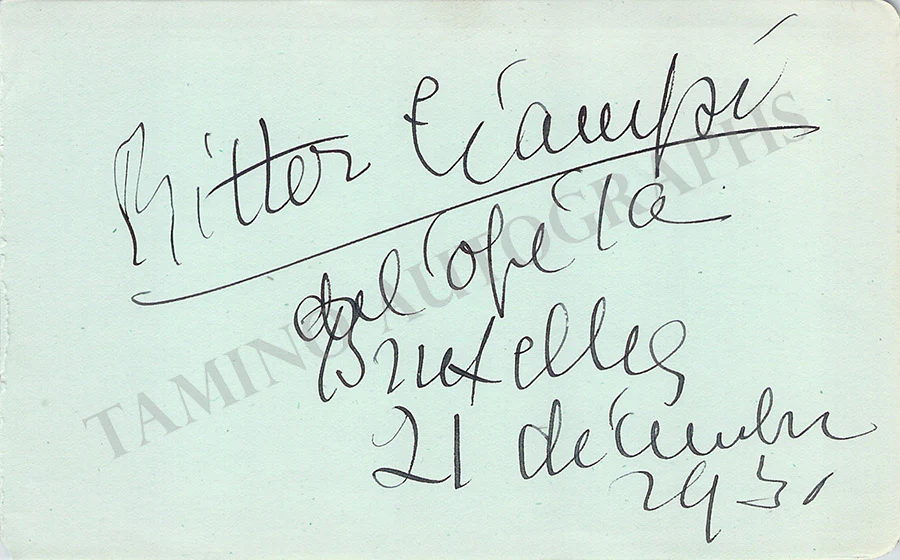 Ritter Ciampi
de l'opéra
Bruxelles
21 décembre
1931
TAMINO AUTOGRAPHS